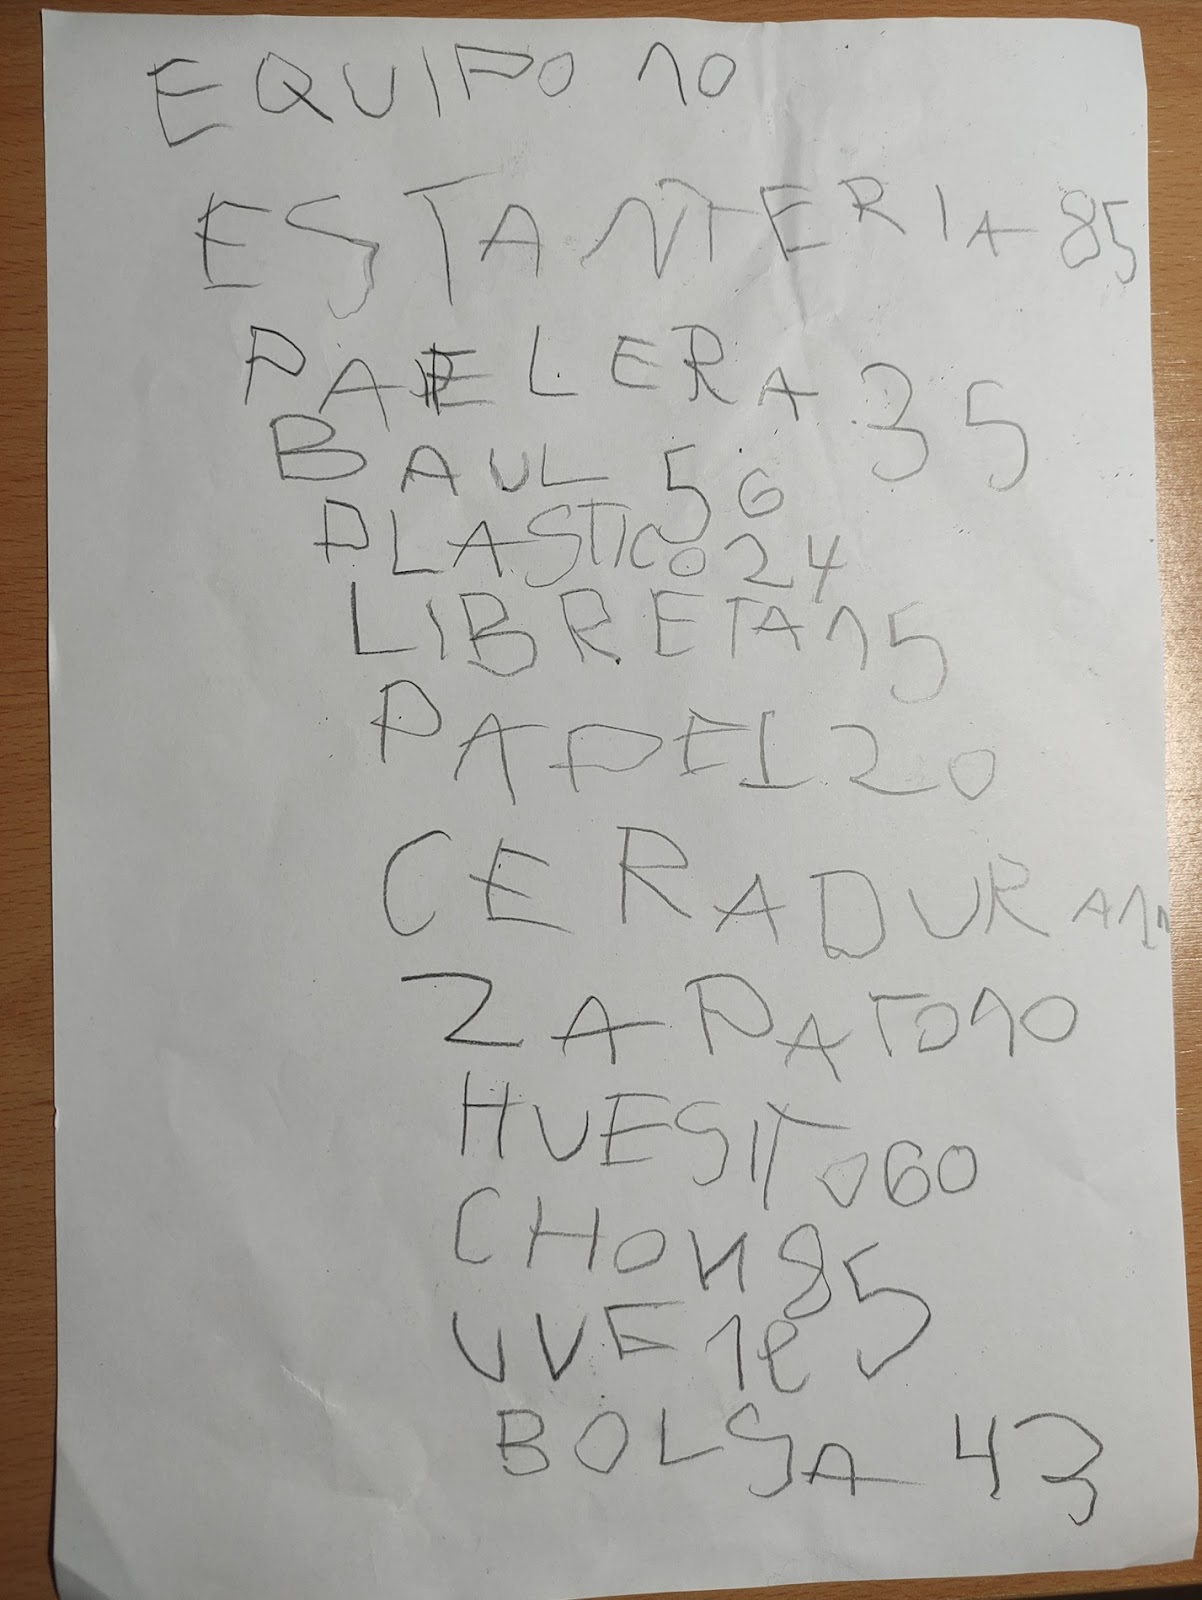 EQUIPO 10
ESTANTERIA 85
PAELERA 35
BAUL 56
PLASTICO 24
LIBRETA 15
PAPEL 20
CERADURA 11
ZAPATO 10
HUESITO 60
CHON 85
UVE 18
BOLSA 43